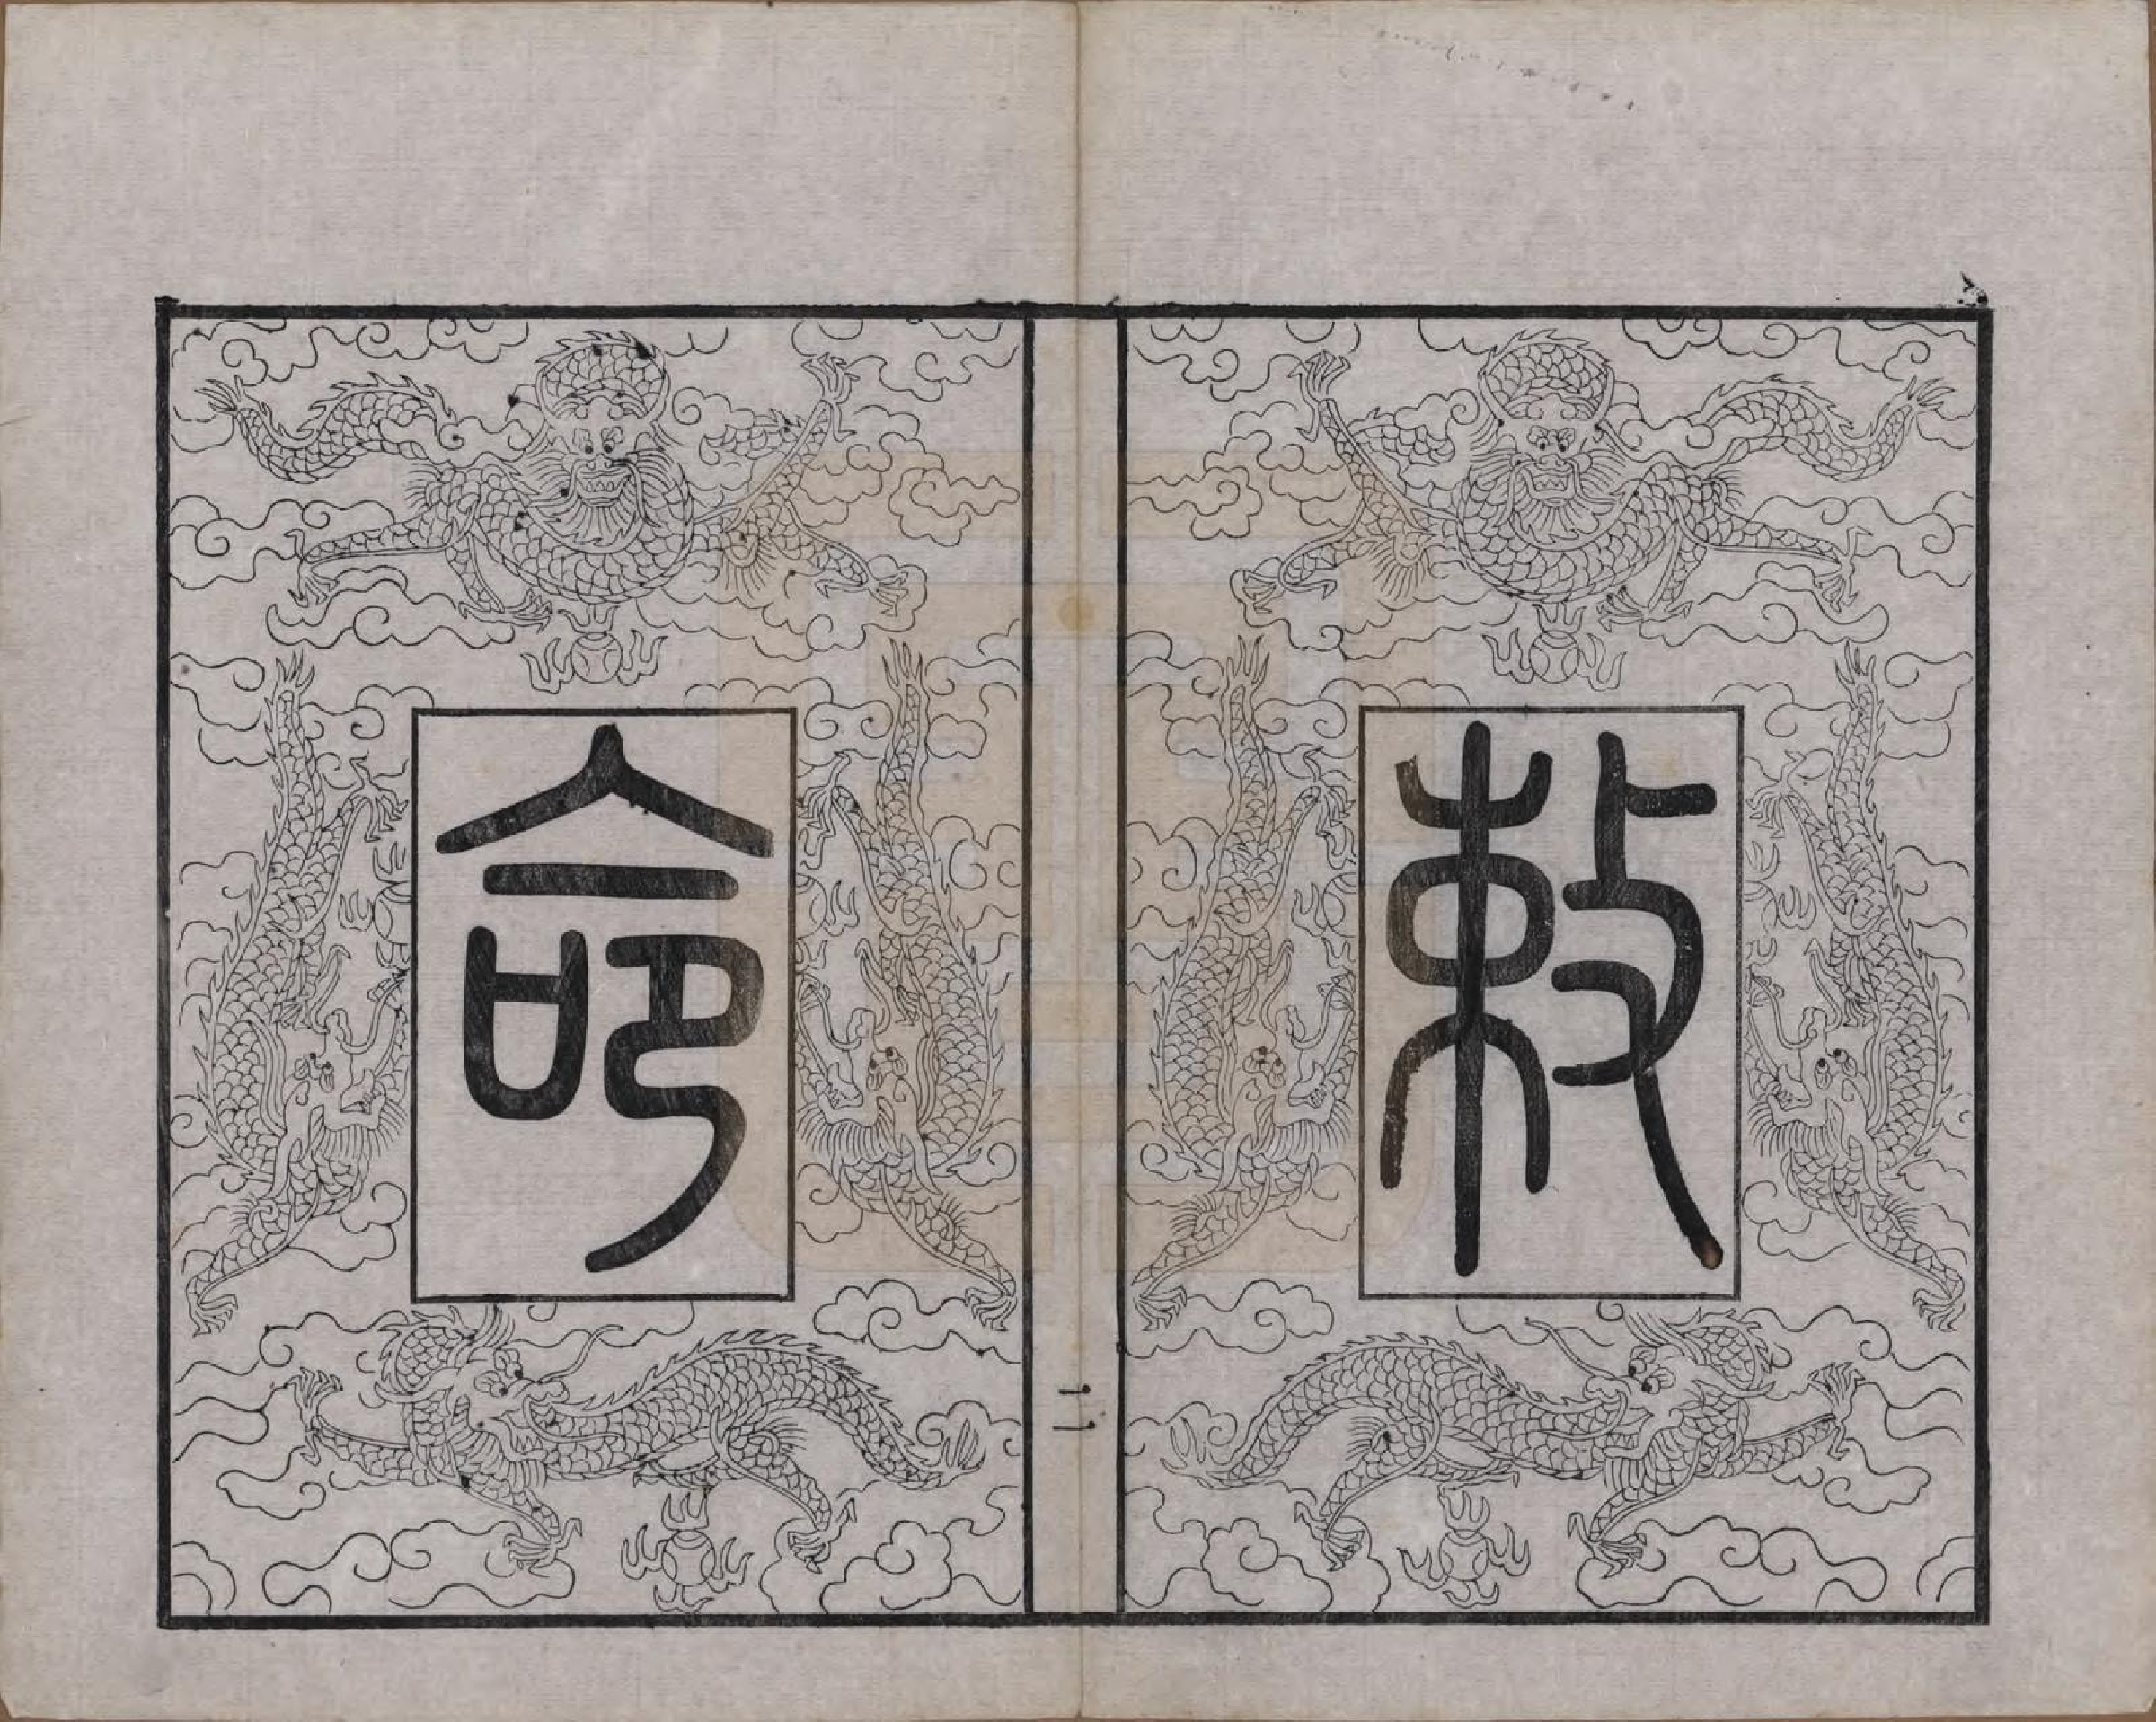 敕
命
二